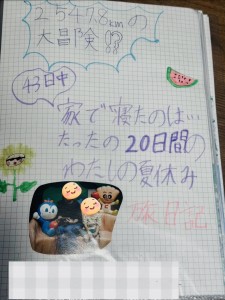 2547.8kmの
大冒険!?
43日中
家で寝たのは…
たったの20日間の
わたしの夏休み
旅日誌